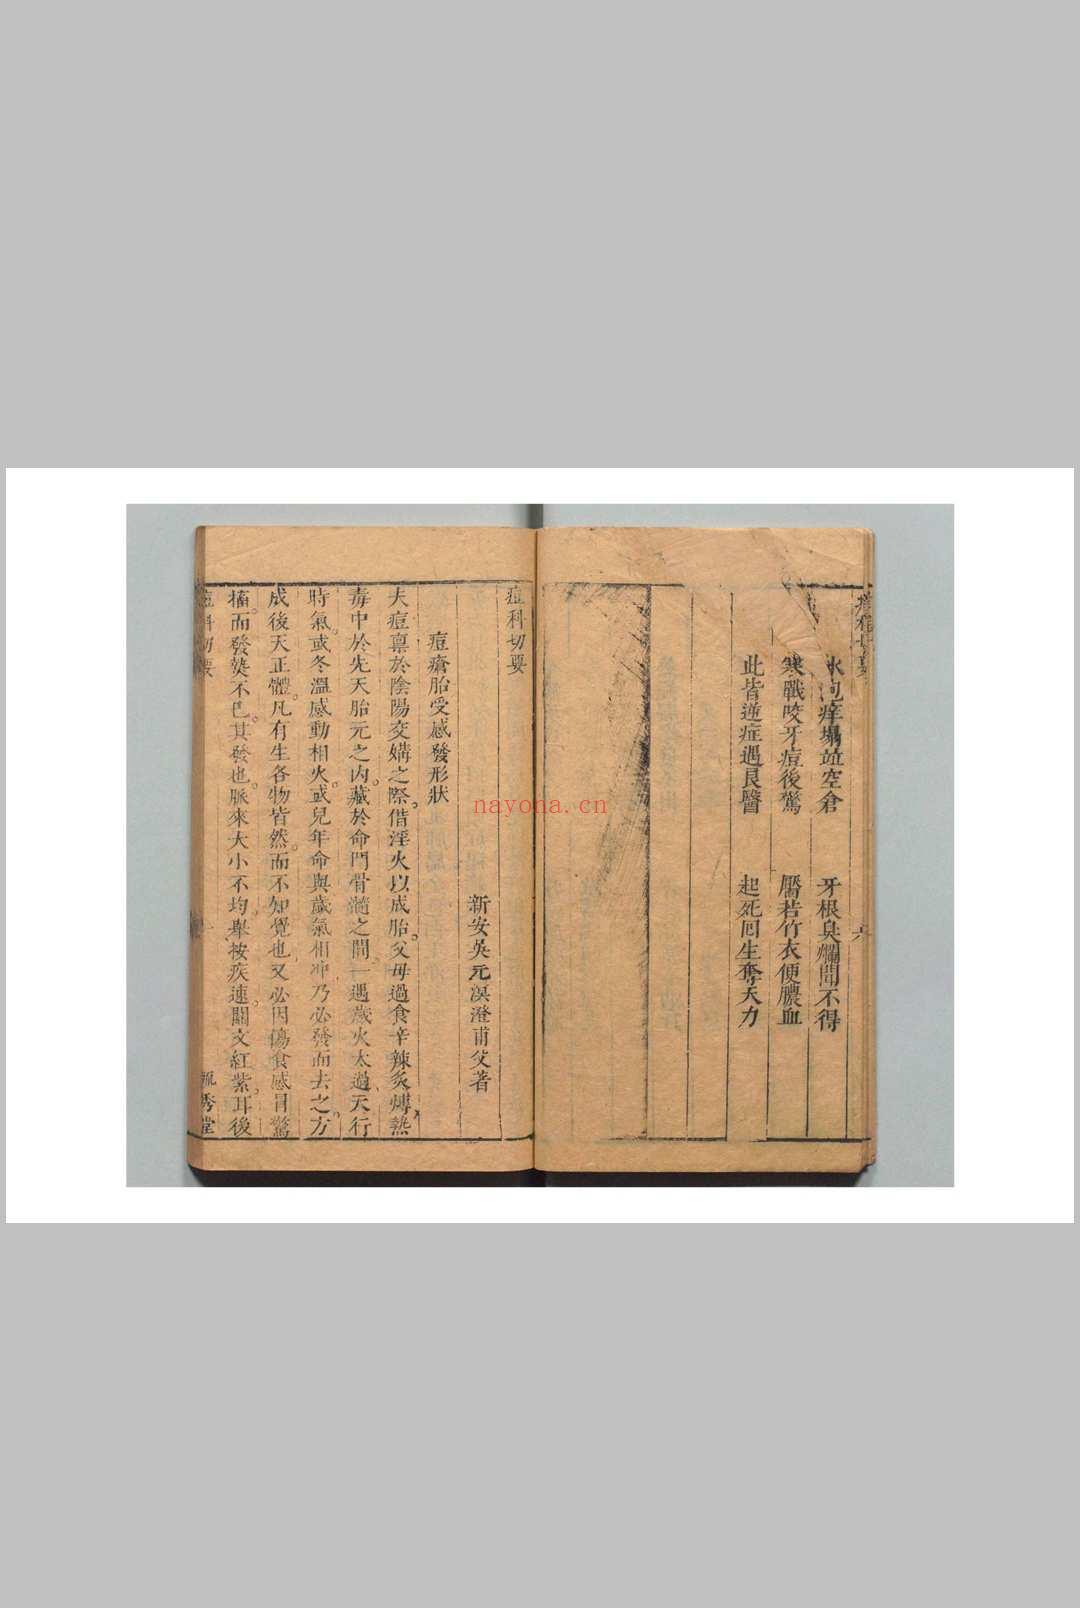 水泡痒塌並空倉 牙根臭爛聞不得
寒戰咬牙痘後驚 靨若竹衣便膿血
此皆逆症遇良醫 起死回生奪天力
六
痘科切要
新安吳元溟澄甫父著
痘瘡胎受感發形狀
夫痘禀於陰陽交媾之際借淫火以成胎父母過食辛辣炙煿熱
毒中於先天胎元之內藏於命門骨髓之間一遇歲火太過天行
時氣或冬溫感動相火或兒年命與歲氣相冲乃必發而去之方
成後天正體凡有生各物皆然而不知覺也又必因傷食感冒驚
搐而發熱不已其發也脈來大小不均舉按疾速關文紅紫耳後
痘科切要
秀堂
nayona.cn